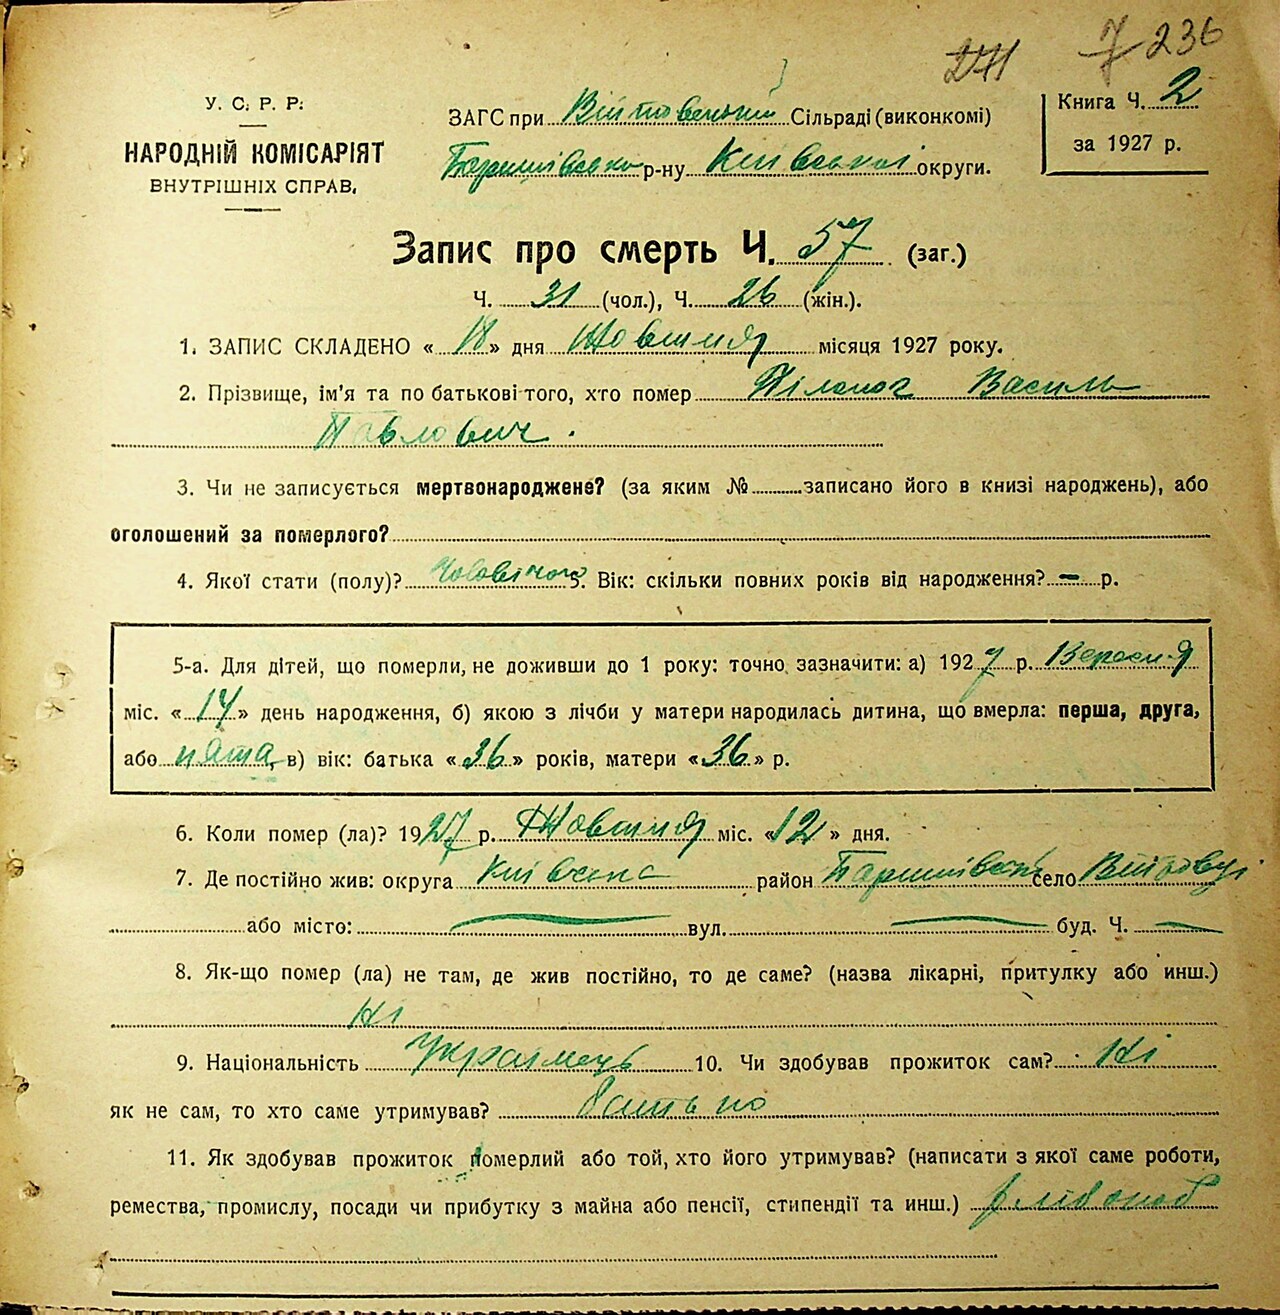 271 7 236
У. С. Р. Р.
НАРОДНІЙ КОМІСАРІЯТ
ВНУТРІШНІХ СПРАВ.
ЗАГС при Війтовецькій Сільраді (виконкомі)
Баришівсько р-ну Київської округи.
Книга Ч. 2
за 1927 р.
Запис про смерть Ч. 57 (заг.)
Ч. 31 (чол.), Ч. 26 (жін.).
1. ЗАПИС СКЛАДЕНО « 18 » дня Жовтня місяця 1927 року.
2. Прізвище, ім'я та по батькові того, хто помер Василь
Павлович.
3. Чи не записується мертвонароджене? (за яким № записано його в книзі народжень), або
оголошений за померлого?
4. Якої стати (полу)? Чоловічого 5. Вік: скільки повних років від народження? — р.
5-а. Для дітей, що померли, не доживши до 1 року: точно зазначити: а) 1927 р. Вересня
міс. « 14 » день народження, б) якою з лічби у матери народилась дитина, що вмерла: перша, друга,
або пята, в) вік: батька « 36 » років, матери « 36 » р.
6. Коли помер (ла)? 1927 р. Жовтня міс. « 12 » дня.
7. Де постійно жив: округа Київська район Баришівськ село Війтовці
або місто: — вул. — буд. Ч. —
8. Як-що помер (ла) не там, де жив постійно, то де саме? (назва лікарні, притулку або инш.)
Ні
9. Національність Українець 10. Чи здобував прожиток сам? Ні
як не сам, то хто саме утримував? батько
11. Як здобував прожиток померлий або той, хто його утримував? (написати з якої саме роботи,
ремества, промислу, посади чи прибутку з майна або пенсії, стипендії та инш.) хлібороб